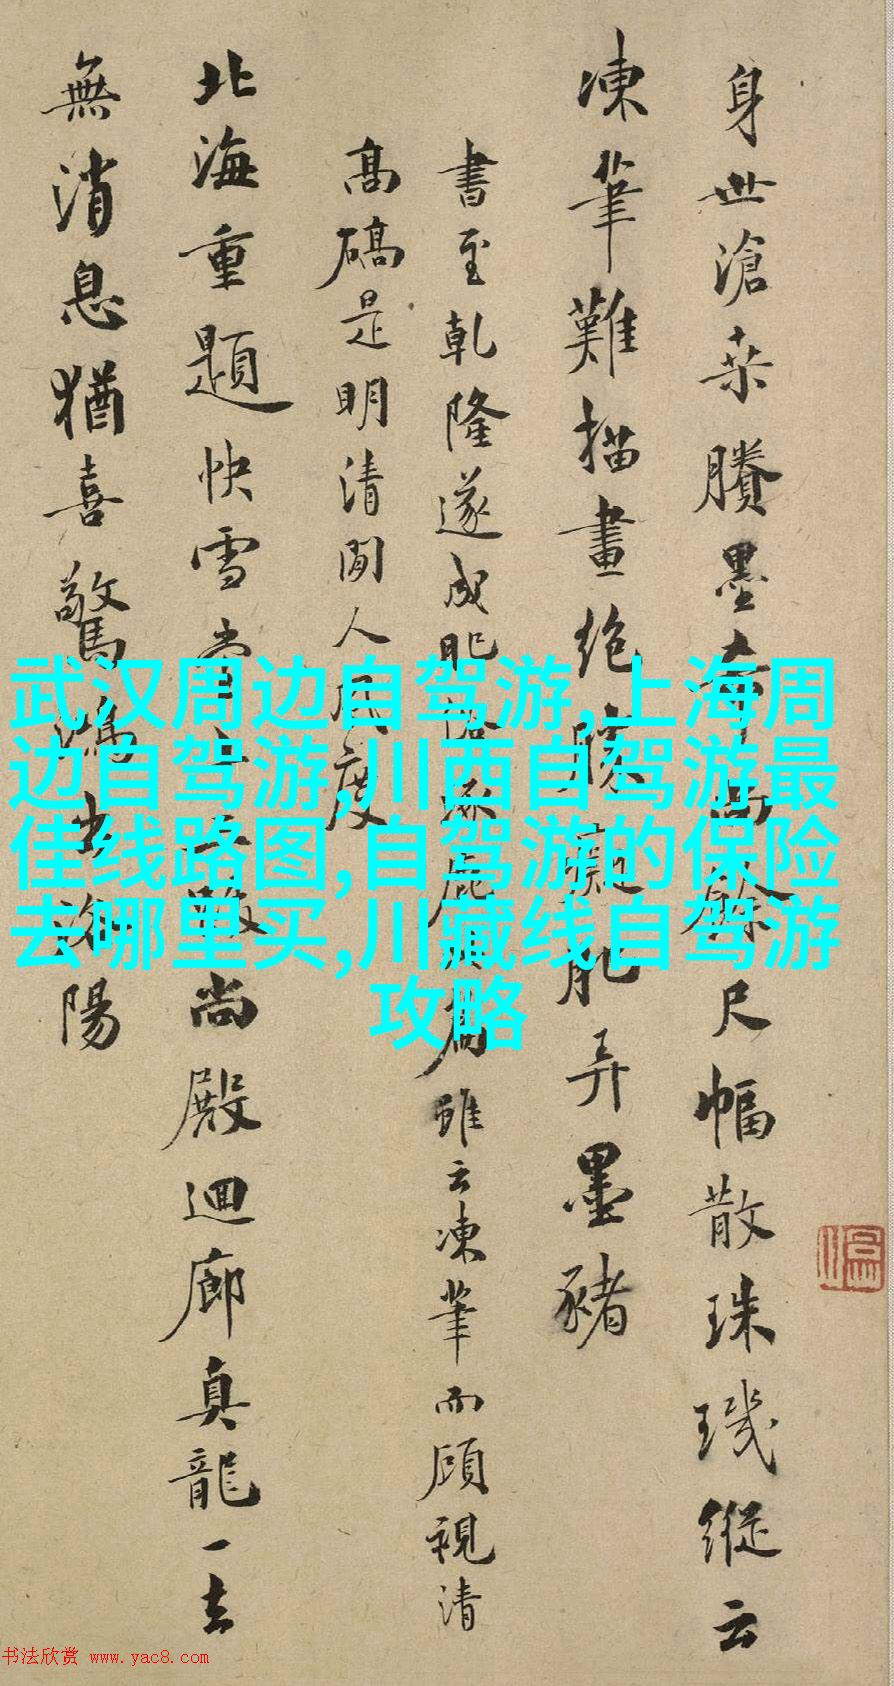 身世滄桑賸墨
尺幅散珠璣縱云
凍筆難描畫絶
肥弄墨豬
書至乾隆遂成肥
雖云凍筆而顧視清
高碻是明清間人
度
北海重題快雪堂
尚殿迴廊真龍一去
無消息猶喜驚鴻出洛陽
武汉周边自驾游,上海周
边自驾游,川西自驾游最
佳线路图,自驾游的保险
去哪里买,川藏线自驾游
攻略
书法欣赏 www.yac8.com